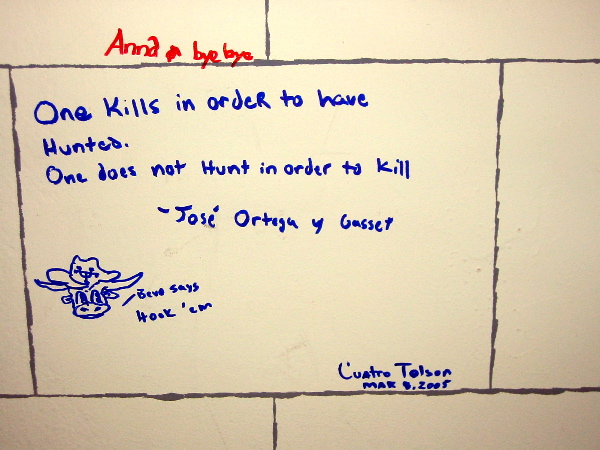 Anna bye bye
One Kills in order to have
Hunted.
One does not Hunt in order to Kill
~José Ortega y Gasset
Bevo says
Hook 'em
Cuatro Tolson
MAR 8, 2005